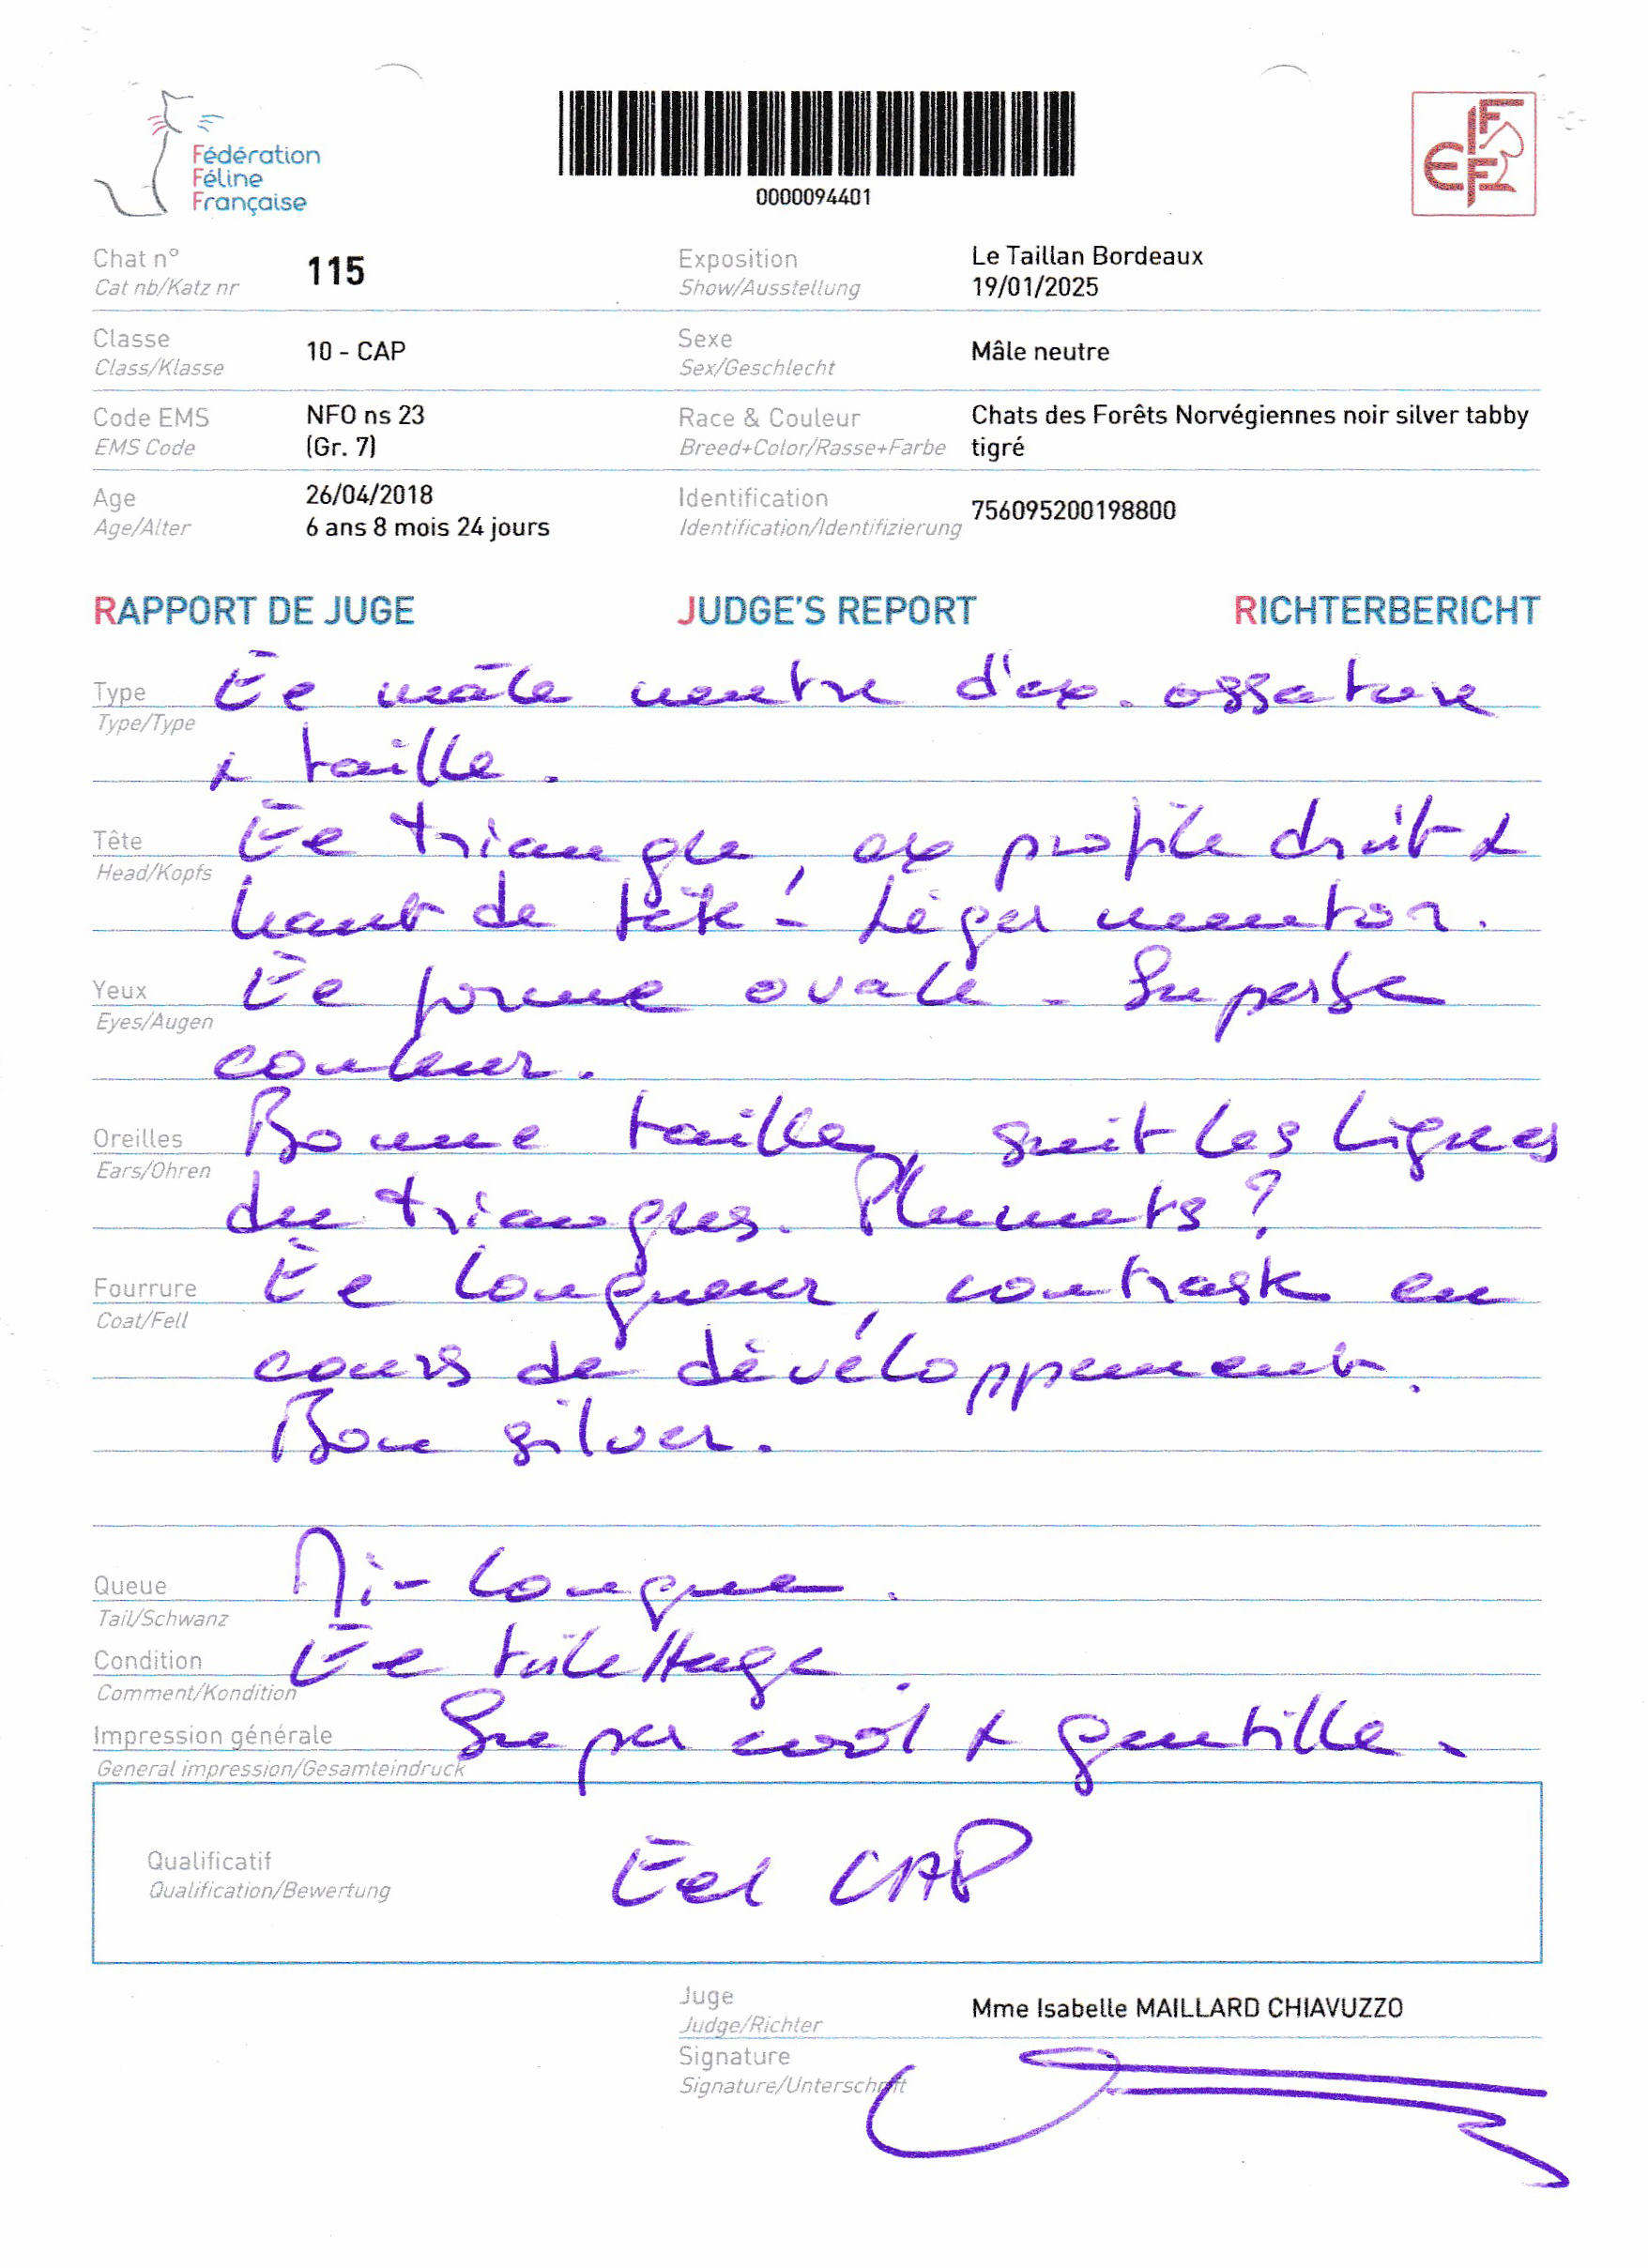 Fédération
Féline
Française
0000094401
FIFe
Chat n° 115 Exposition Le Taillan Bordeaux
Cat nb/Katz nr Show/Ausstellung 19/01/2025
Classe 10 - CAP Sexe Mâle neutre
Class/Klasse Sex/Geschlecht
Code EMS NFO ns 23 Race & Couleur Chats des Forêts Norvégiennes noir silver tabby
EMS Code (Gr. 7) Breed+Color/Rasse+Farbe tigré
Age 26/04/2018 Identification 756095200198800
Age/Alter 6 ans 8 mois 24 jours Identification/Identifizierung
RAPPORT DE JUGE JUDGE'S REPORT RICHTERBERICHT
Type mâle neutre d'ex. ossature
Type/Type
& taille.
Tête triangle, ex profile droit &
Head/Kopfs
haut de tête - Léger menton.
Yeux forme ovale - Superbe
Eyes/Augen
couleur.
Oreilles Bonne taille, suit les lignes
Ears/Ohren
du triangles. Plumets ?
Fourrure longueur, contraste en
Coat/Fell
cours de développement.
Bon silver.
Queue Mi-longue.
Tail/Schwanz
Condition toilettage.
Comment/Kondition
Impression générale Super cool & gentille.
General impression/Gesamteindruck
Qualificatif CAP
Qualification/Bewertung
Juge Mme Isabelle MAILLARD CHIAVUZZO
Judge/Richter
Signature
Signature/Unterschrift